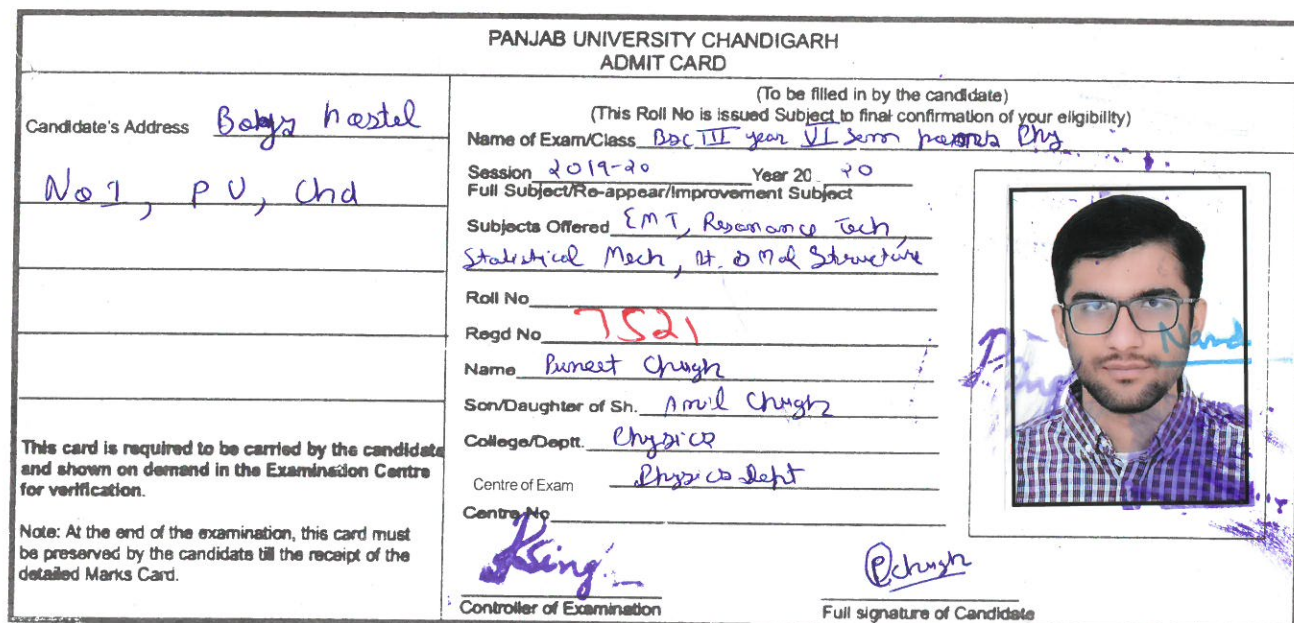 PANJAB UNIVERSITY CHANDIGARH
ADMIT CARD
Candidate's Address Boys hostel
No 1, PU, Chd
This card is required to be carried by the candidate
and shown on demand in the Examination Centre
for verification.
Note: At the end of the examination, this card must
be preserved by the candidate till the receipt of the
detailed Marks Card.
(To be filled in by the candidate)
(This Roll No is issued Subject to final confirmation of your eligibility)
Name of Exam/Class Bsc III year VI Sem Phy
Session 2019-20 Year 20 20
Full Subject/Re-appear/Improvement Subject
Subjects Offered EMT, Resonance Tech,
Statistical Mech, At. & Mol Structure
Roll No
Regd No 7521
Name Puneet Chugh
Son/Daughter of Sh. Anil Chugh
College/Deptt. Physics
Centre of Exam Physics Dept
Centre No
KSing
Controller of Examination
PChugh
Full signature of Candidate